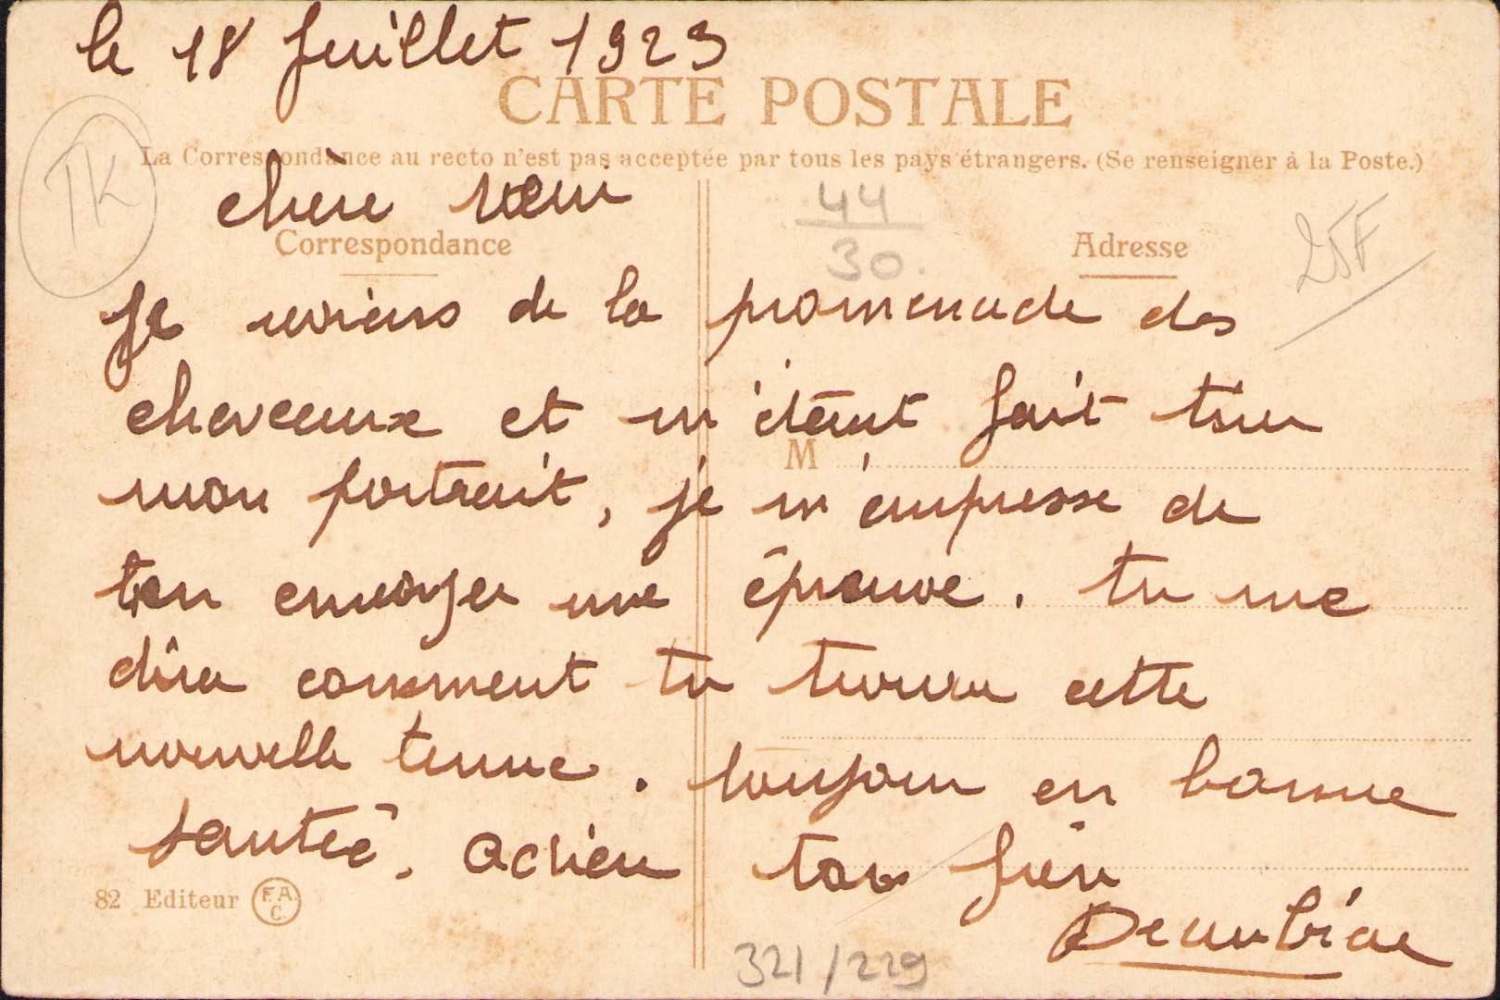 le 18 Juillet 1923
CARTE POSTALE
La Correspondance au recto n'est pas acceptée par tous les pays étrangers. (Se renseigner à la Poste.)
TK
chère sœur
44
30.
25F
Correspondance
Adresse
Je reviens de la promenade des
cheveaux et m'étant fait tirer
M
mon portrait, je m'empresse de
t'en envoyer une épreuve. tu me
dira comment tu trouve cette
nouvelle tenue. toujour en bonne
santée. adieu ton frère
82 Editeur F.A.C.
321/229